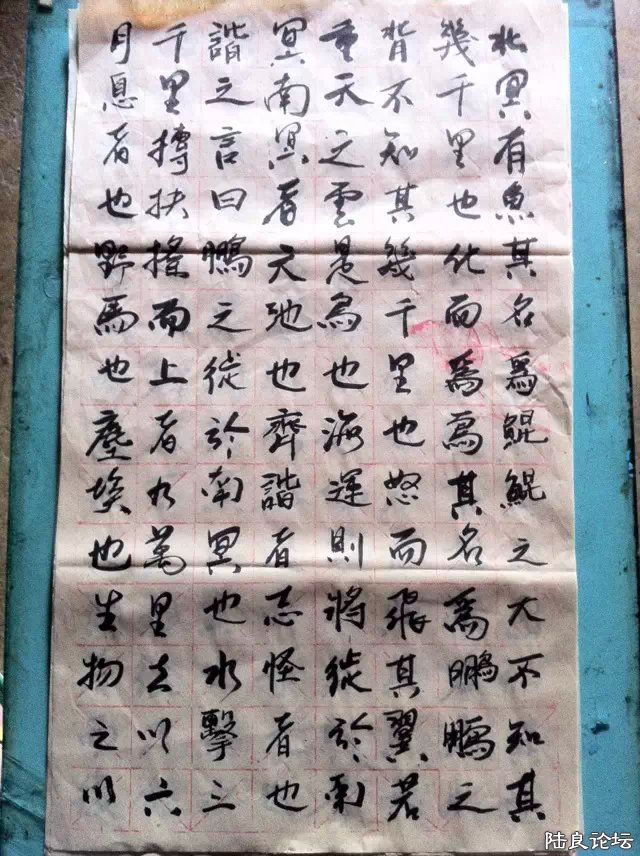 北冥有魚其名爲鯤鯤之大不知其
幾千里也化而爲鳥其名爲鵬鵬之
背不知其幾千里也怒而飛其翼若
垂天之雲是鳥也海運則將徙於南
冥南冥者天池也齊諧者志怪者也
諧之言曰鵬之徙於南冥也水擊三
千里摶扶搖而上者九萬里去以六
月息者也野馬也塵埃也生物之以
陆良论坛